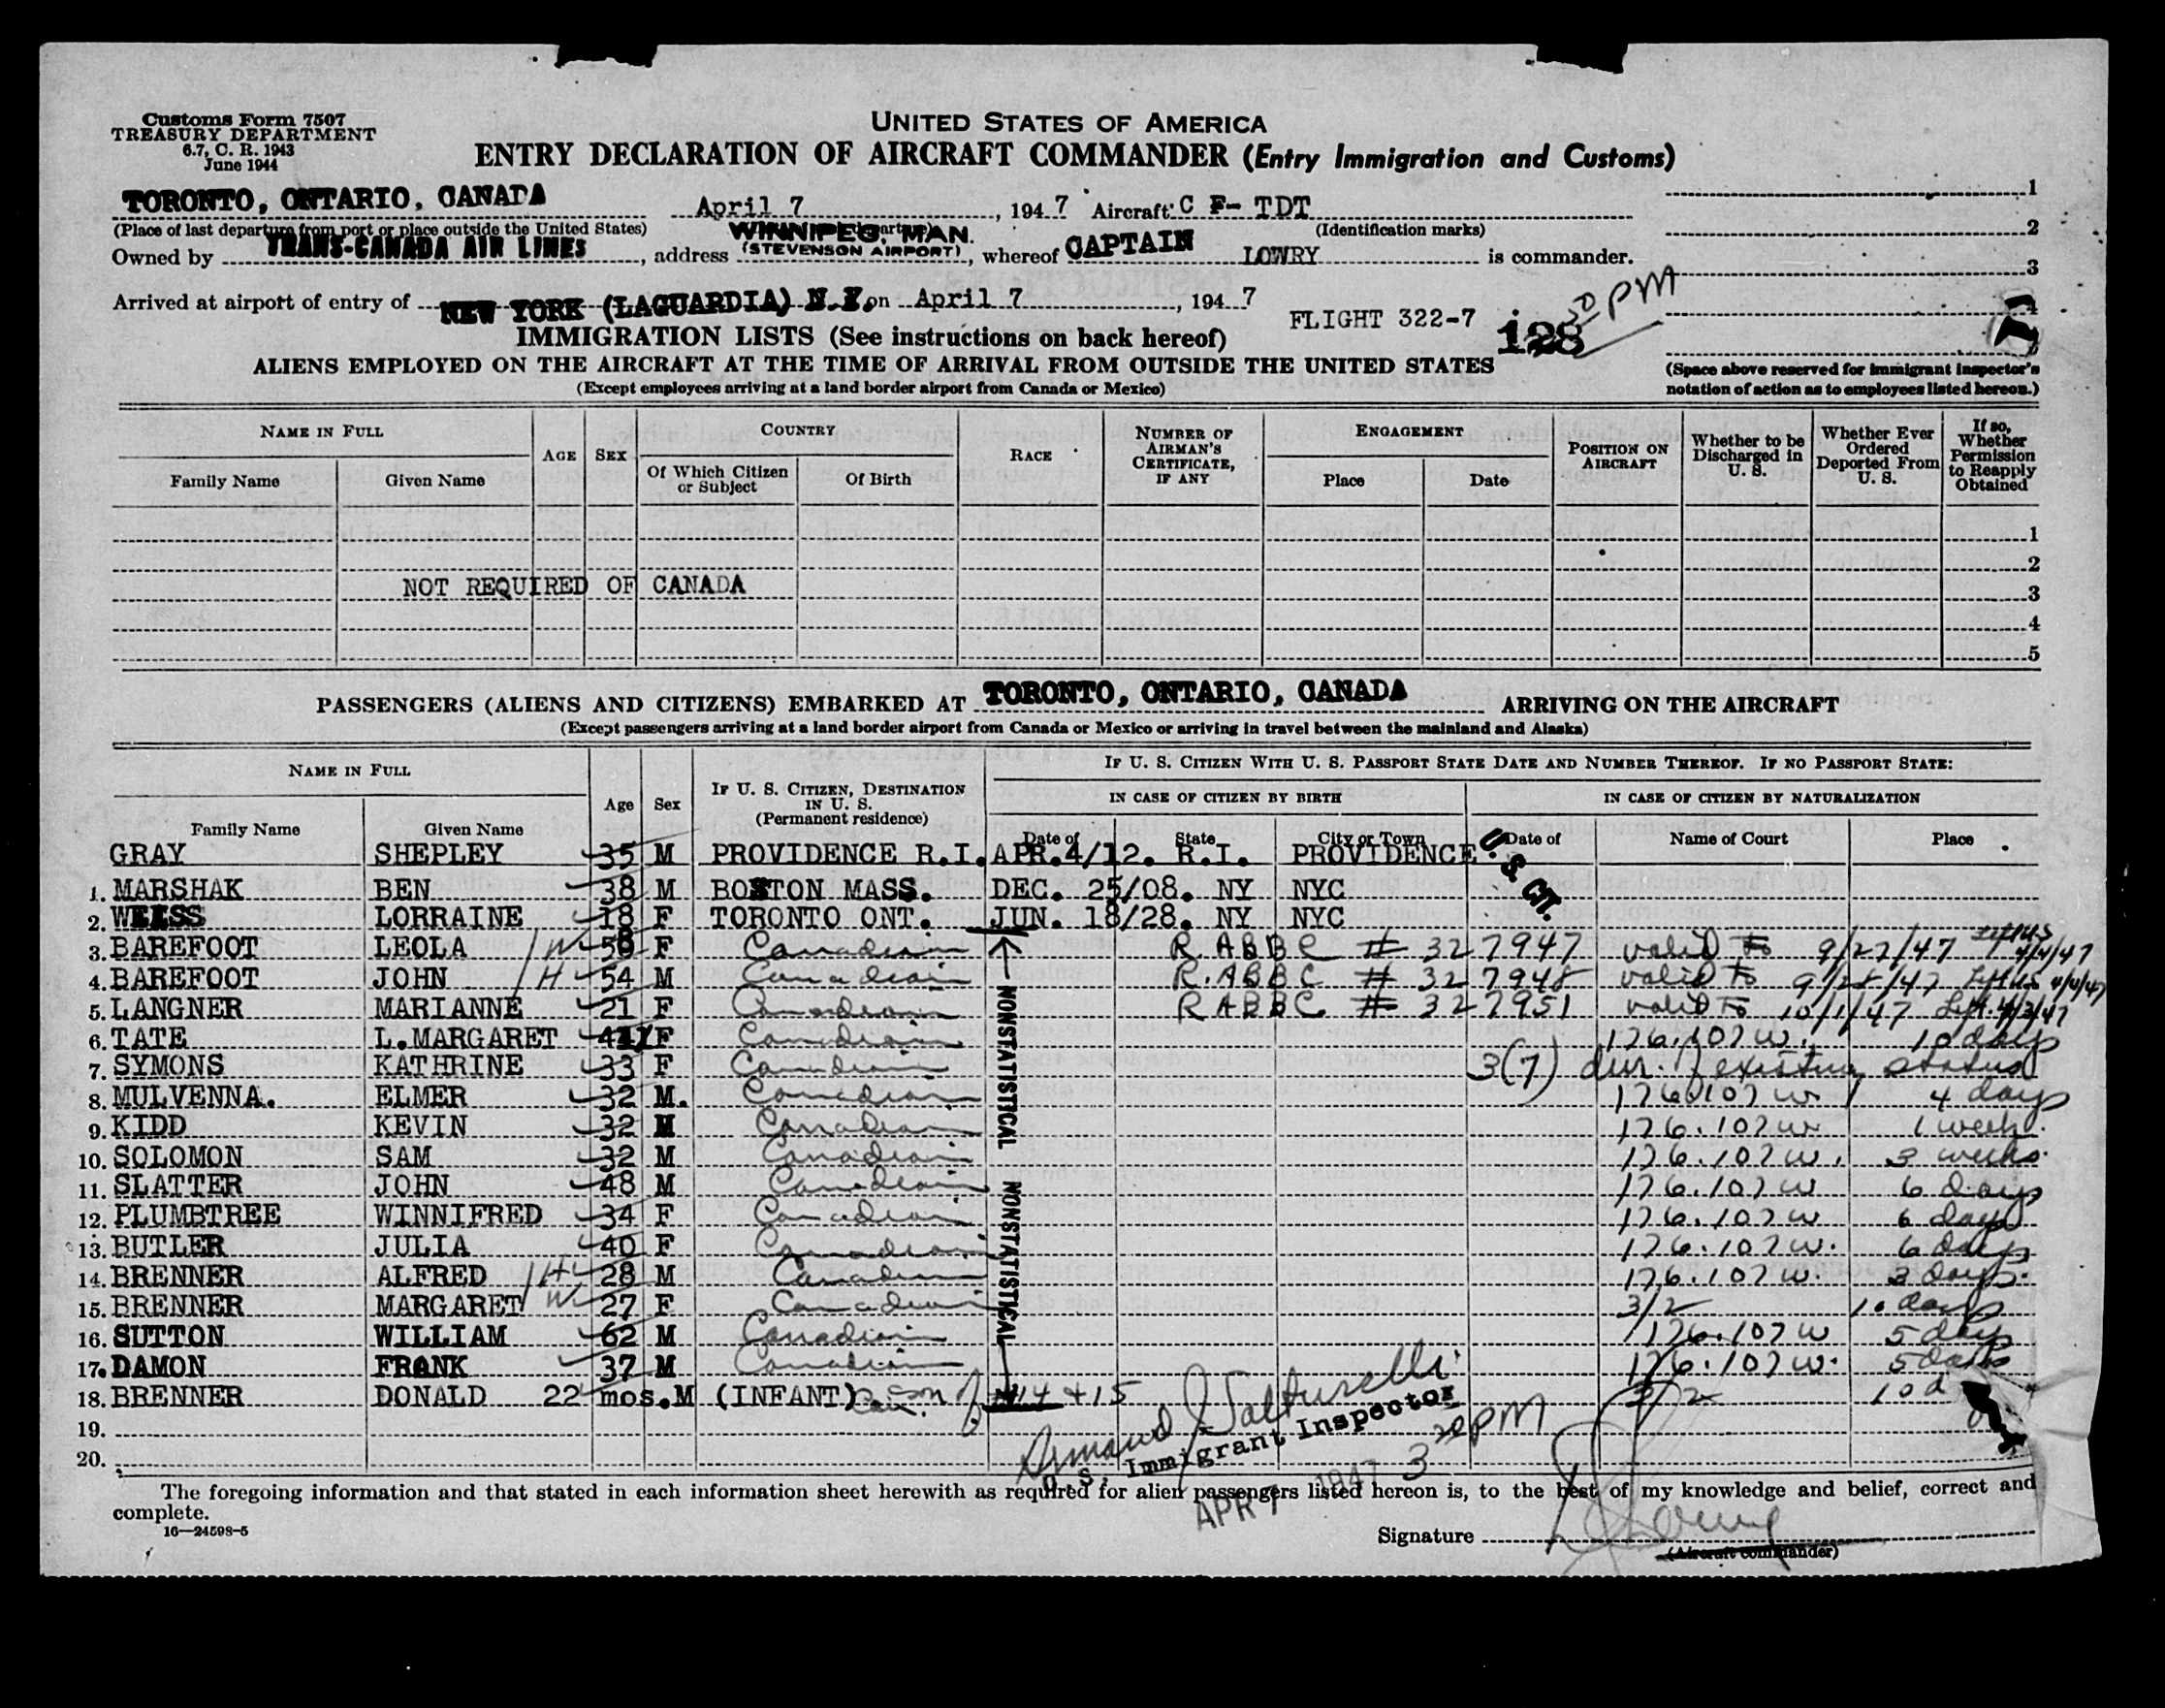 Customs Form 7507
TREASURY DEPARTMENT
6.7, C. R. 1943
June 1944
UNITED STATES OF AMERICA
ENTRY DECLARATION OF AIRCRAFT COMMANDER (Entry Immigration and Customs)
TORONTO, ONTARIO, CANADA April 7, 1947 Aircraft C F- TDT 1
(Place of last departure from port or place outside the United States) (Identification marks) 2
Owned by TRANS-CANADA AIR LINES, address WINNIPEG, MAN. (STEVENSON AIRPORT), whereof CAPTAIN LOWRY is commander. 3
Arrived at airport of entry of NEW YORK (LAGUARDIA) N.Y. on April 7, 1947
FLIGHT 322-7 128 PM
IMMIGRATION LISTS (See instructions on back hereof)
ALIENS EMPLOYED ON THE AIRCRAFT AT THE TIME OF ARRIVAL FROM OUTSIDE THE UNITED STATES
(Except employees arriving at a land border airport from Canada or Mexico)
(Space above reserved for immigrant inspector's notation of action as to employees listed hereon.)
NAME IN FULL AGE SEX COUNTRY RACE NUMBER OF AIRMAN'S CERTIFICATE, IF ANY ENGAGEMENT POSITION ON AIRCRAFT Whether to be Discharged in U. S. Whether Ever Ordered Deported From U. S. If so, Whether Permission to Reapply Obtained
Family Name Given Name Of Which Citizen or Subject Of Birth Place Date
1
2
NOT REQUIRED OF CANADA 3
4
5
PASSENGERS (ALIENS AND CITIZENS) EMBARKED AT TORONTO, ONTARIO, CANADA ARRIVING ON THE AIRCRAFT
(Except passengers arriving at a land border airport from Canada or Mexico or arriving in travel between the mainland and Alaska)
NAME IN FULL Age Sex IF U. S. CITIZEN, DESTINATION IN U. S. (Permanent residence) IF U. S. CITIZEN WITH U. S. PASSPORT STATE DATE AND NUMBER THEREOF. IF NO PASSPORT STATE:
IN CASE OF CITIZEN BY BIRTH IN CASE OF CITIZEN BY NATURALIZATION
Family Name Given Name Date of State City or Town Date of Name of Court Place
GRAY SHEPLEY 35 M PROVIDENCE R.I. APR.4/12. R.I. PROVIDENCE U. S. CIT.
1. MARSHAK BEN 38 M BOSTON MASS. DEC. 25/08. NY NYC
2. WEISS LORRAINE 18 F TORONTO ONT. JUN. 18/28. NY NYC
3. BAREFOOT LEOLA W 58 F Canadian R.ABBC # 327947 valid to 9/27/47 4/4/47
4. BAREFOOT JOHN H 54 M Canadian R.ABBC # 327948 valid to 9/28/47 Left US 4/4/47
5. LANGNER MARIANNE 21 F Canadian RABBC # 327951 valid to 10/1/47 Left. 4/3/47
6. TATE L.MARGARET F Canadian 176.107 w. 10 days
7. SYMONS KATHRINE 33 F Canadian 3(7) dur. existing status
8. MULVENNA. ELMER 32 M. Canadian 176.107 w 4 days
9. KIDD KEVIN 32 M Canadian 176.107 w 1 week.
10. SOLOMON SAM 32 M Canadian 176.107 w. 3 weeks.
11. SLATTER JOHN 48 M Canadian 176.107 w 6 days
12. PLUMBTREE WINNIFRED 34 F Canadian 176.107 w 6 days
13. BUTLER JULIA 40 F Canadian 176.107 w. 6 days
14. BRENNER ALFRED H 28 M Canadian 176.107 w. 3 days.
15. BRENNER MARGARET W 27 F Canadian 3/2 10 days
16. SUTTON WILLIAM 62 M Canadian 176.107 w 5 days
17. DAMON FRANK 37 M Canadian 176.107 w. 5 days
18. BRENNER DONALD 22 mos. M (INFANT) Can. son of #14 + 15 3/2 10 d
NONSTATISTICAL NONSTATISTICAL
19.
20.
Armand
U. S. Immigrant Inspector
APR 7 1947 3 20 PM
The foregoing information and that stated in each information sheet herewith as required for alien passengers listed hereon is, to the best of my knowledge and belief, correct and
complete.
16—24598-5
Signature
(Aircraft commander)